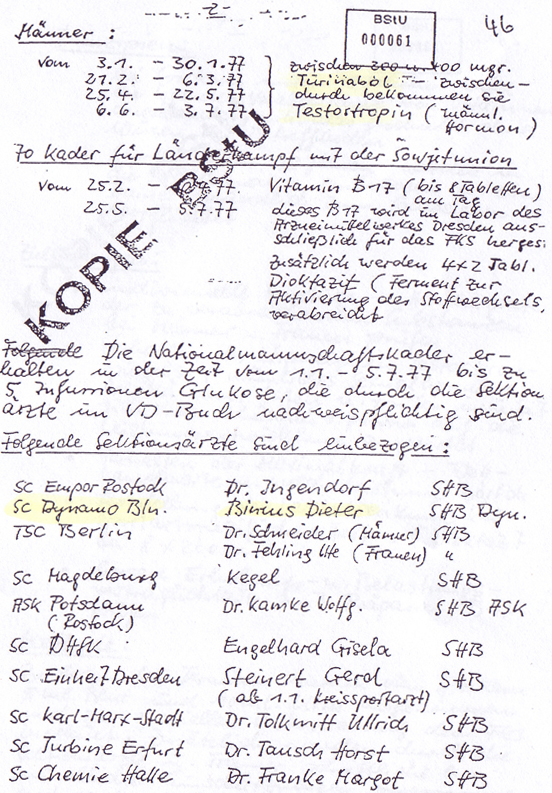 - 2 -
BStU
000061
46
Männer :
vom 3.1. - 30.1.77 zwischen 300 u. 400 mgr.
21.2. - 6.3.77 Turinabol - zwischen-
25.4. - 22.5.77 durch bekommen sie
6.6. - 3.7.77 Testortropin (männl.
Hormon)
70 Kader für Länderkampf mit der Sowjetunion
vom 25.2. - .77. Vitamin B17 (bis 8 Tabletten)
am Tag
25.5. - 5.7.77 dieses B17 wird im Labor des
Arzneimittelwerkes Dresden aus-
schließlich für das FKS herges.
zusätzlich werden 4x2 Tabl.
Dioktazit (Ferment zur
Aktivierung des Stoffwechsels,
verabreicht
KOPIE BStU
Folgende Die Nationalmannschaftskader er-
halten in der Zeit vom 1.1. - 5.7.77 bis zu
5 Infussionen Glukose, die durch die Sektion
ärzte im VD-Buch nachweispflichtig sind.
Folgende Sektionsärzte sind einbezogen :
SC Empor Rostock Dr. Ingendorf SHB
SC Dynamo Bln. Binus Dieter SHB Dyn.
TSC Berlin Dr. Schneider (Männer) SHB
Dr. Fehling Ute (Frauen) "
SC Magdeburg Kegel SHB
ASK Potsdam Dr. Kamke Wolfg. SHB ASK
(Rostock)
SC DHfK Engelhard Gisela SHB
SC Einheit Dresden Steinert Gerd SHB
(ab 1.1. Kreissportarzt)
SC Karl-Marx-Stadt Dr. Tolkmitt Ullrich SHB
SC Turbine Erfurt Dr. Tausch Horst SHB
SC Chemie Halle Dr. Franke Margot SHB